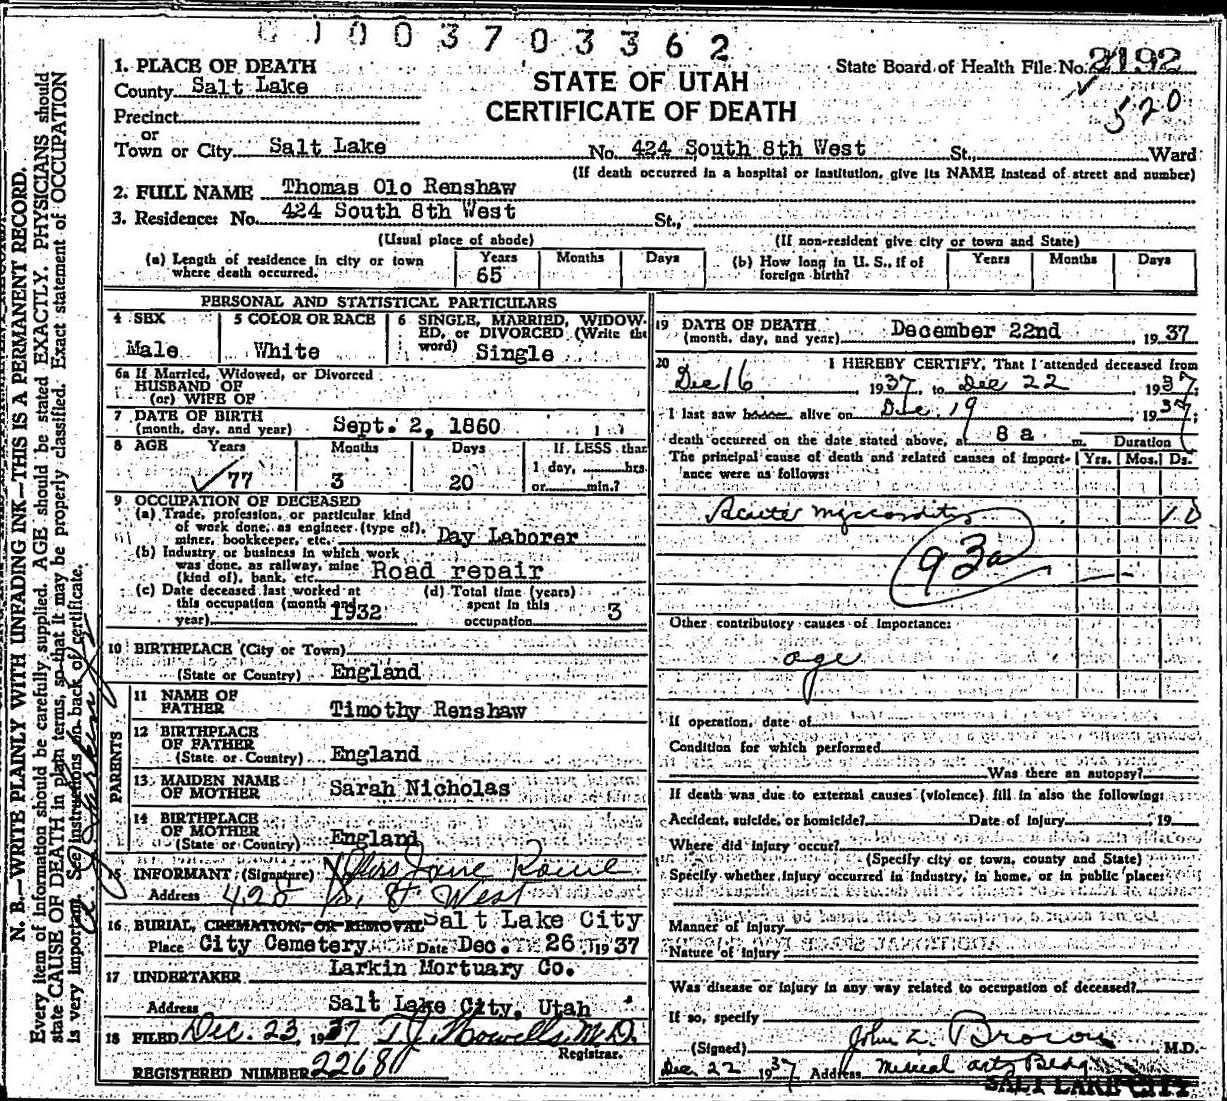 0 1 0 0 3 7 0 3 3 6 2
STATE OF UTAH
CERTIFICATE OF DEATH
State Board of Health File No. 2192
520
1. PLACE OF DEATH
County Salt Lake
Precinct
or
Town or City Salt Lake No. 424 South 8th West St., Ward
(If death occurred in a hospital or institution, give its NAME instead of street and number)
2. FULL NAME Thomas Olo Renshaw
3. Residence: No. 424 South 8th West St.,
(Usual place of abode) (If non-resident give city or town and State)
(a) Length of residence in city or town where death occurred. Years 65 Months Days
(b) How long in U. S., if of foreign birth? Years Months Days
PERSONAL AND STATISTICAL PARTICULARS
4 SEX Male
5 COLOR OR RACE White
6 SINGLE, MARRIED, WIDOWED, or DIVORCED (Write the word) Single
6a If Married, Widowed, or Divorced
HUSBAND OF
(or) WIFE OF
7 DATE OF BIRTH
(month, day, and year) Sept. 2, 1860
8 AGE Years 77 Months 3 Days 20 If LESS than
1 day, hrs.
or min.?
9 OCCUPATION OF DECEASED
(a) Trade, profession, or particular kind
of work done, as engineer (type of),
miner, bookkeeper, etc. Day Laborer
(b) Industry or business in which work
was done, as railway, mine
(kind of), bank, etc. Road repair
(c) Date deceased last worked at
this occupation (month and
year) 1932
(d) Total time (years)
spent in this
occupation 3
10 BIRTHPLACE (City or Town)
(State or Country) England
PARENTS
11 NAME OF
FATHER Timothy Renshaw
12 BIRTHPLACE
OF FATHER
(State or Country) England
13 MAIDEN NAME
OF MOTHER Sarah Nicholas
14 BIRTHPLACE
OF MOTHER
(State or Country) England
15 INFORMANT (Signature) Jane
Address 428 So. 8 West
16 BURIAL, CREMATION, OR REMOVAL Salt Lake City
Place City Cemetery Date Dec. 26 1937
17 UNDERTAKER Larkin Mortuary Co.
Address Salt Lake City, Utah
18 FILED Dec. 23, 1937 T.J. Howells M.D.
Registrar.
REGISTERED NUMBER 22680
19 DATE OF DEATH
(month, day, and year) December 22nd 1937
20 I HEREBY CERTIFY, That I attended deceased from
Dec 16 1937 to Dec 22 1937;
I last saw h alive on Dec 19 1937;
death occurred on the date stated above, at 8 a m. Duration
The principal cause of death and related causes of importance were as follows: Yrs. Mos. Ds.
Acute myocarditis
93a
Other contributory causes of importance:
age
If operation, date of
Condition for which performed
Was there an autopsy?
If death was due to external causes (violence) fill in also the following:
Accident, suicide, or homicide? Date of injury , 19
Where did injury occur?
(Specify city or town, county and State)
Specify whether injury occurred in industry, in home, or in public place:
Manner of injury
Nature of injury
Was disease or injury in any way related to occupation of deceased?
If so, specify
(Signed) John L. Brown M.D.
Dec 22 1937 Address Medical Arts Bldg
SALT LAKE CITY
N. B.—WRITE PLAINLY WITH UNFADING INK—THIS IS A PERMANENT RECORD.
Every item of information should be carefully supplied. AGE should be stated EXACTLY. PHYSICIANS should
state CAUSE OF DEATH in plain terms, so that it may be properly classified. Exact statement of OCCUPATION
is very important. See instructions on back of certificate.